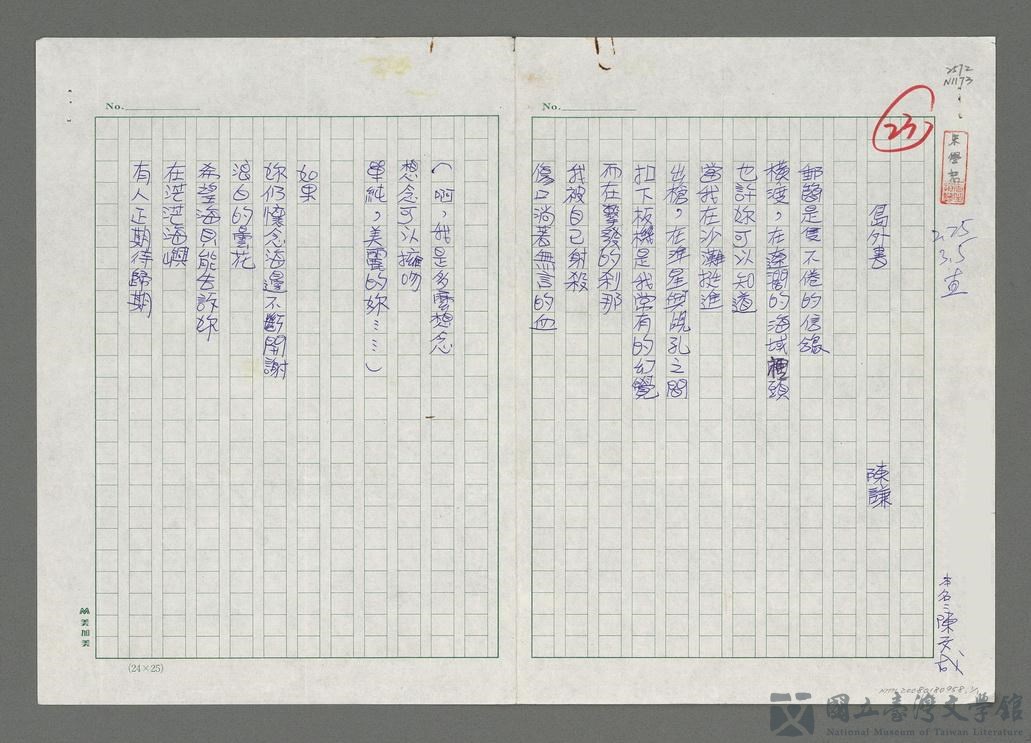 2572
N1173
23
島外書
陳謙
郵簡是隻不倦的信鴿
橫渡，在遼闊的海域裡頭
也許妳可以知道
當我在沙灘挺進
出槍，在準星與覘孔之間
扣下板機是我常有的幻覺
而在擊發的剎那
我被自己射殺
傷口淌著無言的血
（啊，我是多麼想念
想念可以擁吻
單純，美麗的妳……）
如果
妳仍懷念海邊不斷開謝
浪白的曇花
希望海貝能告訴妳
在茫茫海嶼
有人正期待歸期
2.25
3.5
本名：陳文成
No.
No.
美加美
(24×25)
國立臺灣文學館
National Museum of Taiwan Literature